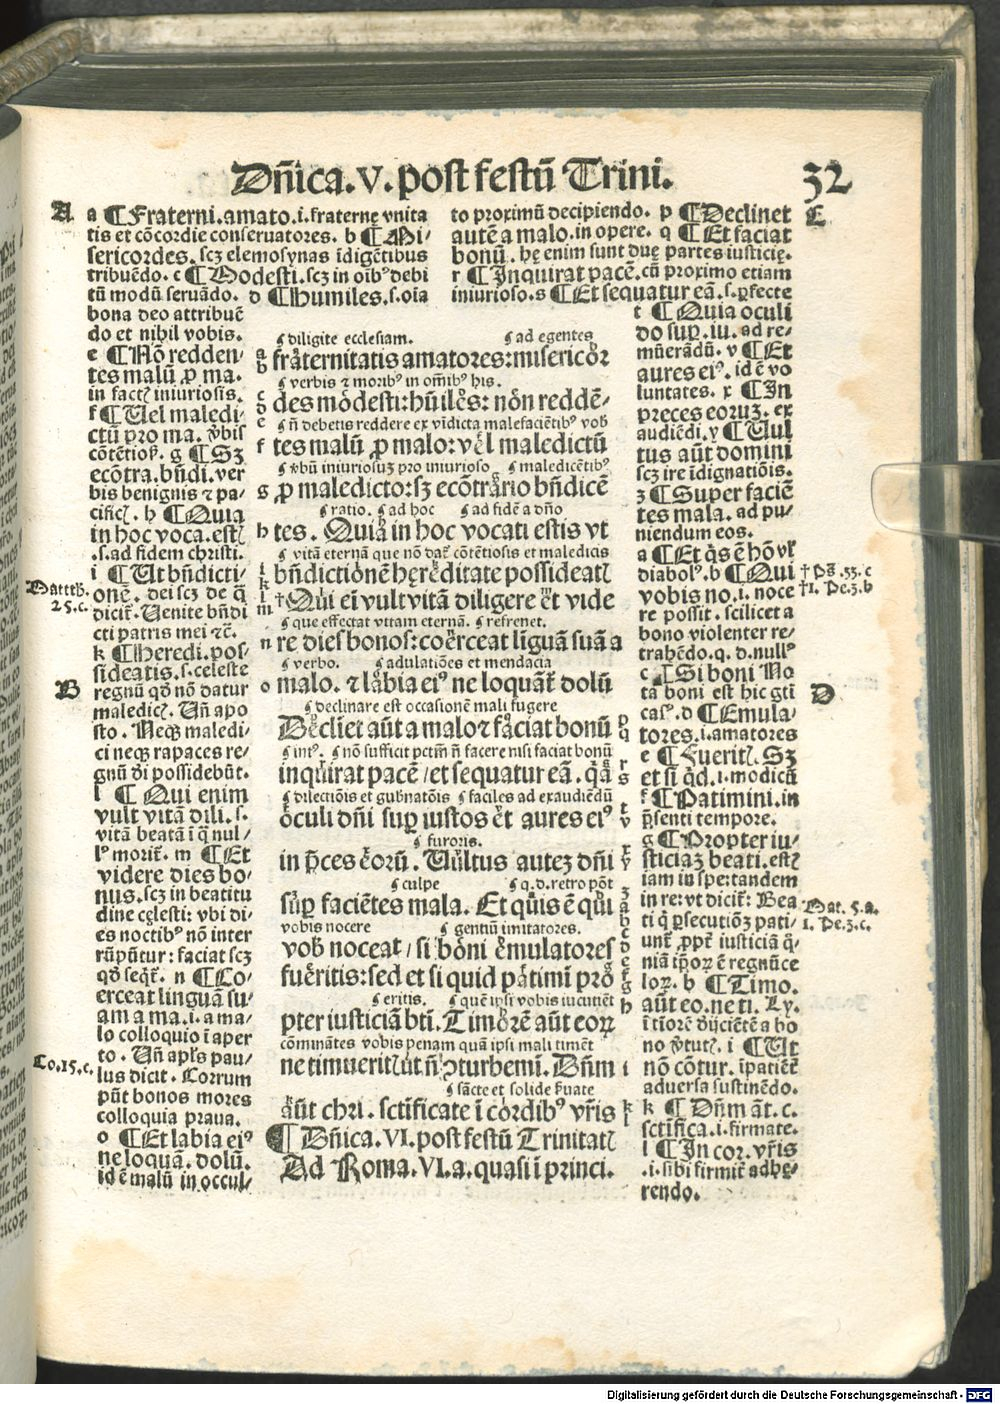 Dn̄ica.v.post festū Trini.
32
A
a ¶Fraterni.amato.i.fraterne vnita
tis et cōcordie conseruatores. b ¶Mi/
sericordes.scz elemosynas īdigētibus
tribuēdo. c ¶Modesti.scz in oībꝰ debi
tū modū seruādo. d ¶Humiles.s.oīa
bona deo attribuē
do et nihil vobis.
e ¶Nō redden/
tes malū ꝓ ma.
in factꝭ iniuriosis.
f ¶Uel maledi/
ctū pro ma. v̄bis
cōtētiosꝭ. g ¶Sz
ecōtra.bn̄di.ver
bis benignis ⁊ pa/
cificꝭ. h ¶Quia
in hoc voca.estꝭ
.s.ad fidem christi.
i ¶Ut bn̄dicti/
onē. dei scz de q̄
dicit̄. Uenite bn̄di
cti patris mei ⁊c̄.
k ¶Heredi.pos/
sideatis.s.celeste
regnū qd̄ nō datur
maledicꝭ. Un̄ apo
sto. Neqꝫ maledi/
ci neqꝫ rapaces re/
gnū d̄i possidebūt.
l ¶Qui enim
vult vitā dili.s.
vitā beatā ī q̄ nul/
lꝰ morit̄. m ¶Et
videre dies bo/
nus.scz in beatitu
dine cęlesti: vbi di/
es noctibꝰ nō inter
rūpūtur: faciat scz
qd̄ seqt̄. n ¶Co/
erceat linguā su/
am a ma.i.a ma/
lo colloquio i aper
to. Un̄ apl̄s pau/
lus dicit. Corrum
pūt bonos mores
colloquia praua.
o ¶Et labia eiꝰ
ne loquā. dolū.
id ē malū in occul/
Matth.
25.c.
B
Co.15.c.
to proximū decipiendo. p ¶Declinet
autē a malo.in opere. q ¶Et faciat
bonū. hę enim sunt duę partes iusticię.
r ¶Inquirat pacē.cū proximo etiam
iniurioso.s ¶Et sequatur eā.s.ꝑfecte
¶ diligite ecclesiam. ¶ ad egentes
fraternitatis amatores:misericor
¶ verbis ⁊ moribꝰ in om̄ibꝰ his.
des modesti:hūiles: non reddē/
¶ n̄ debetis reddere ex vidicta malefaciētibꝰ vob̄
tes malū ꝓ malo:vel maledictū
¶ v̄bū iniuriosuz pro iniurioso ¶ maledicētibꝰ
ꝓ maledicto:sz ecōtrario bn̄dicē
¶ ratio. ¶ ad hoc ¶ ad fidē a dn̄o
tes. Quia in hoc vocati estis vt
¶ vitā eternā que nō dat̄ cōtētiosis et maledicis
bn̄dictionē hęreditate possideatꝭ
†Qui eī vult vitā diligere et vide
¶ que effectat vitam eternā. ¶ refrenet.
re dies bonos:coerceat linguā suā a
¶ verbo. ¶ adulatiōes et mendacia
malo. ⁊ labia eiꝰ ne loquāt̄ dolū
¶ declinare est occasionē mali fugere
Declīet aūt a malo⁊ faciat bonū
¶ intꝰ. ¶ nō sufficit pctm̄ n̄ facere nisi faciat bonū
inquirat pacē/et sequatur eā. q̄a
¶ dilectiōis et gubn̄atōis ¶ faciles ad exaudiēdū
oculi dn̄i suꝑ iustos et aures eiꝰ
¶ furoris.
in p̄ces eorū. Uultus autez dn̄i
¶ culpe ¶ q.d.retro pōt
suꝑ faciētes mala. Et quis ē qui
vobis nocere ¶ gentiū imitatores.
vob̄ noceat/si boni emulatores
fueritis:sed et si quid patimī pro
¶ eritis. ¶ quē ipsi vobis incutiēt
pter iusticiā bt̄i. Timorē aūt eoꝝ
cōminātes vobis penam quā ipsi mali timēt
ne timueritꝭ/ut n̄ ꝯturbemī. Dn̄m
¶ sācte et solide ẜuate
aūt chri. sct̄ificate ī cordibꝰ vr̄is
¶ Dn̄ica.VI.post festū Trinitatꝭ
Ad Roma.VI.a.quasi ī princi.
E
t ¶Quia oculi
do suꝑ.iu. ad re/
mūerādū. v ¶Et
aures eiꝰ. id ē vo
luntates. x ¶In
preces eoruz. ex
audiēdi.y ¶Uul
tus aūt domini
scz ire īdignatiōis.
z ¶Super faciē
tes mala. ad pu/
niendum eos.
a ¶Et q̇s ē hōvl̄
diabolꝰ.b ¶Qui
vobis no.i.noce
re possit.scilicet a
bono violenter re/
trahēdo.q.d.nullꝰ
c ¶Si boni No
ta boni est hic gt̄i
casꝰ.d ¶Emula/
tores.i.amatores
e ¶Fueritꝭ. Sz
et si q̇d.i.modicū
f ¶Patimini.in
p̄senti tempore.
g ¶Propter iu/
sticiaz beati.estꝭ
iam in spe:tandem
in re:vt dicit̄: Bea
ti q̇ ꝑsecutiōz pati/
unt̄ ꝓpt̄ iusticiā q̄/
niā ip̄oꝝ ē regnū ce
loꝝ. h ¶Timo.
aūt eo.ne ti. Ly.
ī tīorē dijciētē a bo
no v̄tutꝭ. i ¶Ut
nō cōtur. ipatiēt̄
aduersa sustinēdo.
k ¶Dn̄m āt.c.
sct̄ifica.i.firmate.
l ¶In cor.vr̄is
.i.sibi firmit̄ adhę/
rendo.
†Ps̄.33.c
†1.Pe.3.b
D
Mat.5.a.
1.Pe.3.c.
Digitalisierung gefördert durch die Deutsche Forschungsgemeinschaft - DFG